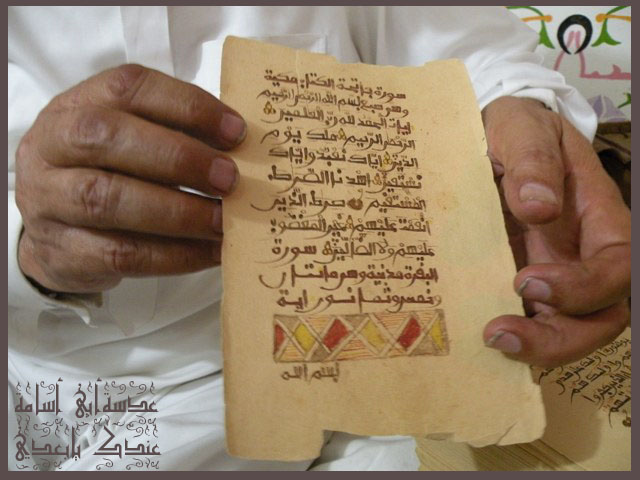 سورة فاتحة الكتاب مكية
وهى سبع بسم الله الرحمن الرحيم
ايات الحمد لله رب العلمين
الرحمن الرحيم ملك يوم
الدين اياك نعبد واياك
نستعين اهدنا الصرط
المستقيم صرط الذين
انعمت عليهم غير المغضوب
عليهم ولا الضالين سورة
البقرة مدنية وهى مائتان
وخمس وثمانون اية
بسم الله
عدسة أبي أسامة
عندك يابعدي